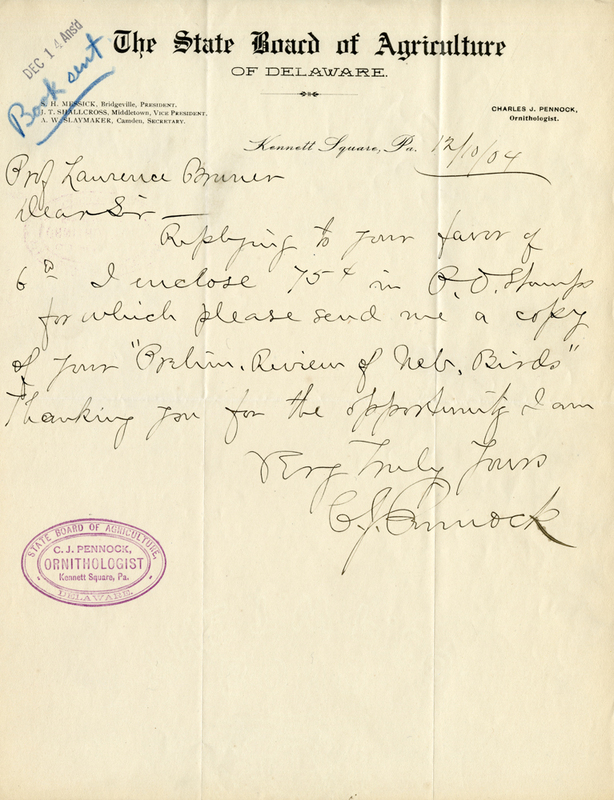 DEC 14 Ans'd
Book sent
The State Board of Agriculture
OF DELAWARE.
S. H. MESSICK, Bridgeville, PRESIDENT.
J. T. SHALLCROSS, Middletown, VICE PRESIDENT.
A. W. SLAYMAKER, Camden, SECRETARY.
CHARLES J. PENNOCK,
Ornithologist.
Kennett Square, Pa. 12/10/04
Prof Laurence Bruner
Dear Sir —
Replying to your favor of
6th I enclose 75¢ in P.O. Stamps
for which please send me a copy
of your "Prelim. Review of Neb. Birds"
Thanking you for the opportunity I am
Very Truly Yours
C. J. Pennock
STATE BOARD OF AGRICULTURE.
C. J. PENNOCK,
ORNITHOLOGIST
Kennett Square, Pa.
DELAWARE.